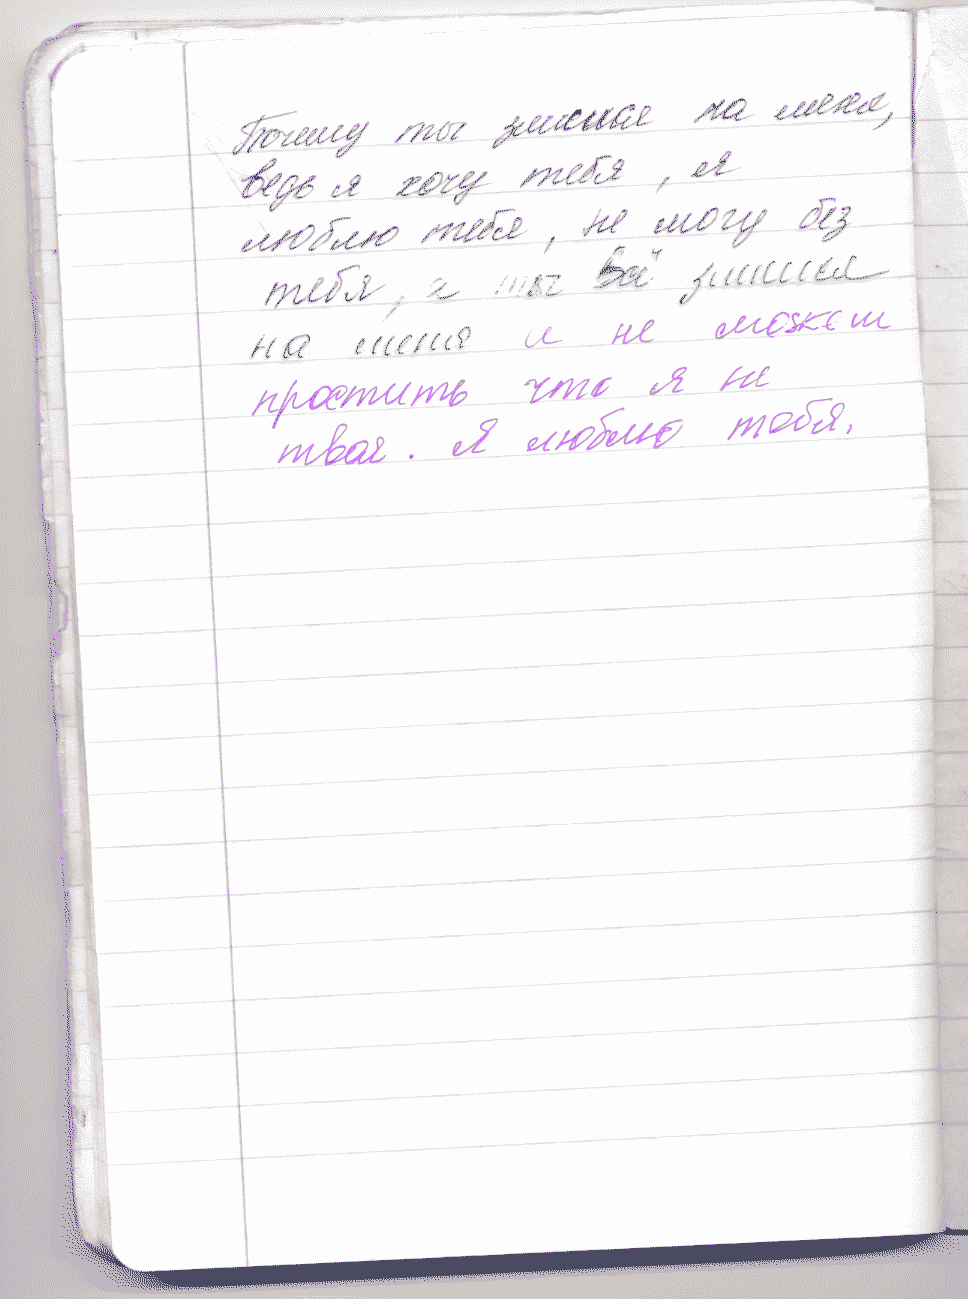 Почему ты злишься на меня,
ведь я хочу тебя, я
люблю тебя, не могу без
тебя, а ты всё злишься
на меня и не можеш
простить что я не
твоя. Я люблю тебя.